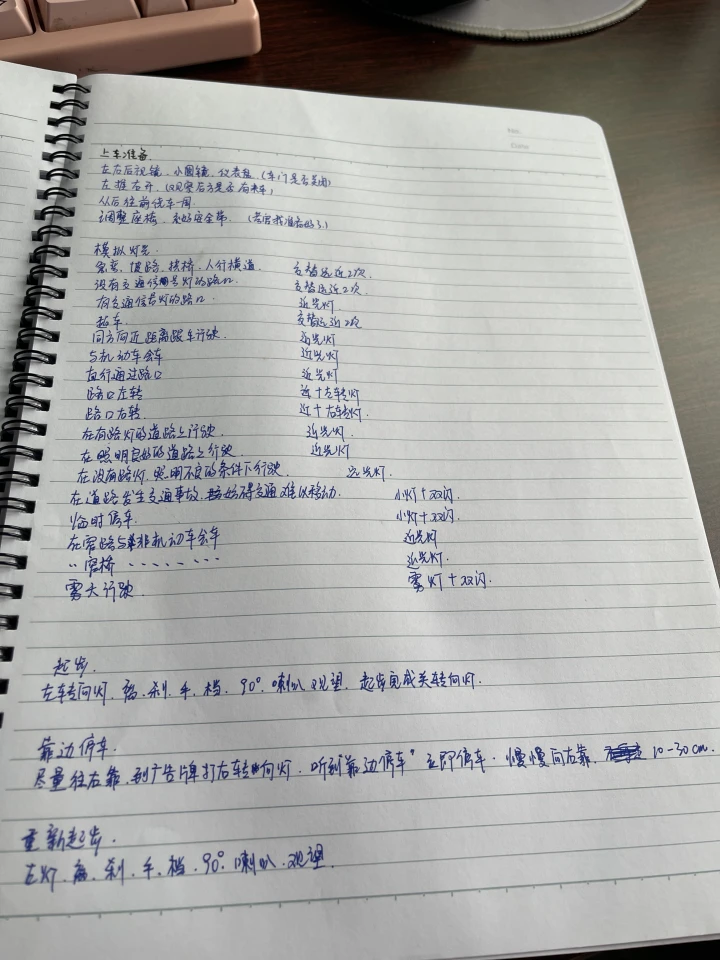 No.
Date
上车准备.
左右后视镜、小圆镜、仪表盘.(车门是否关闭)
左推右开.(观察后方是否有来车)
从后往前绕车一周.
调整座椅、系好安全带.(考官我准备好了)
模拟灯光.
急弯、坡路、拱桥、人行横道. 交替远近2次.
没有交通信号灯的路口. 交替远近2次.
有交通信号灯的路口 近光灯.
超车. 交替远近2次
同方向近距离跟车行驶. 近光灯
与机动车会车 近光灯
直行通过路口 近光灯
路口左转 近+左转灯
路口右转. 近+右转灯.
在有路灯的道路上行驶. 近光灯.
在照明良好的道路上行驶 近光灯
在没有路灯,照明不良的条件下行驶. 远光灯.
在道路发生交通事故,妨碍交通难以移动. 小灯+双闪.
临时停车. 小灯+双闪.
在窄路与非机动车会车 近光灯
〃窄桥 〃 近光灯.
雾天行驶. 雾灯+双闪.
起步.
左转向灯、离、刹、手、档、90°、喇叭、观望、起步完成关转向灯.
靠边停车.
尽量往右靠、到广告牌打右转向灯、听到"靠边停车"立即停车、慢慢向右靠、10-30cm.
重新起步.
左灯、离、刹、手、档、90°、喇叭、观望.